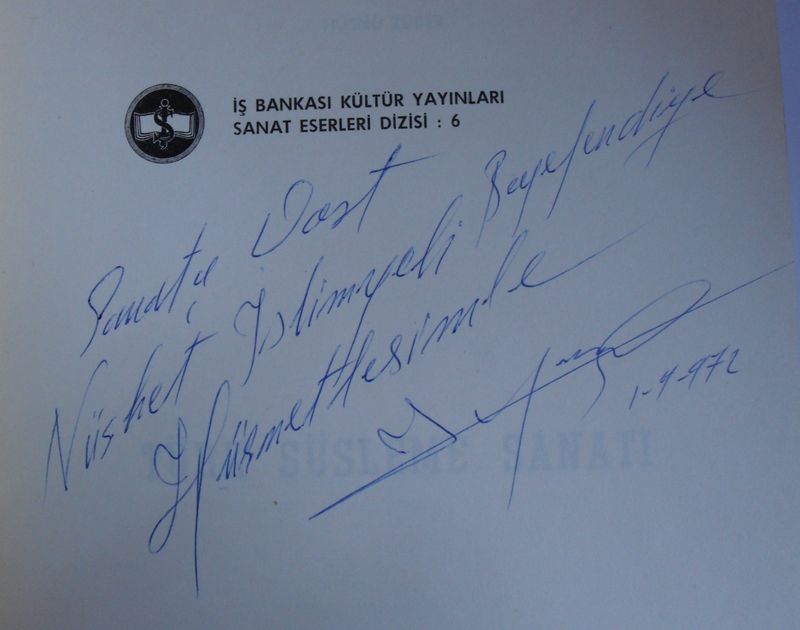 İŞ BANKASI KÜLTÜR YAYINLARI
SANAT ESERLERİ DİZİSİ : 6
Sanatçı Dost
Nüshet İslimyeli Beyefendiye
Hürmetlesimle
1-4-972
SÜSLEME SANATI